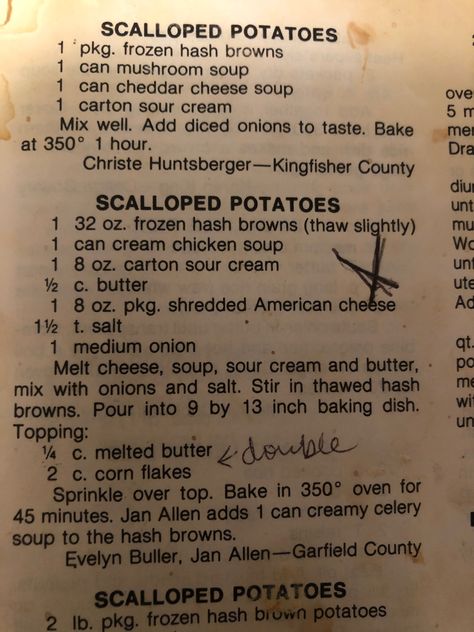 SCALLOPED POTATOES
1 pkg. frozen hash browns
1 can mushroom soup
1 can cheddar cheese soup
1 carton sour cream
Mix well. Add diced onions to taste. Bake
at 350° 1 hour.
Christe Huntsberger—Kingfisher County
SCALLOPED POTATOES
1 32 oz. frozen hash browns (thaw slightly)
1 can cream chicken soup
1 8 oz. carton sour cream
½ c. butter
1 8 oz. pkg. shredded American cheese
1½ t. salt
1 medium onion
Melt cheese, soup, sour cream and butter,
mix with onions and salt. Stir in thawed hash
browns. Pour into 9 by 13 inch baking dish.
Topping:
¼ c. melted butter
2 c. corn flakes
double
Sprinkle over top. Bake in 350° oven for
45 minutes. Jan Allen adds 1 can creamy celery
soup to the hash browns.
Evelyn Buller, Jan Allen—Garfield County
SCALLOPED POTATOES
2 lb. pkg. frozen hash brown potatoes